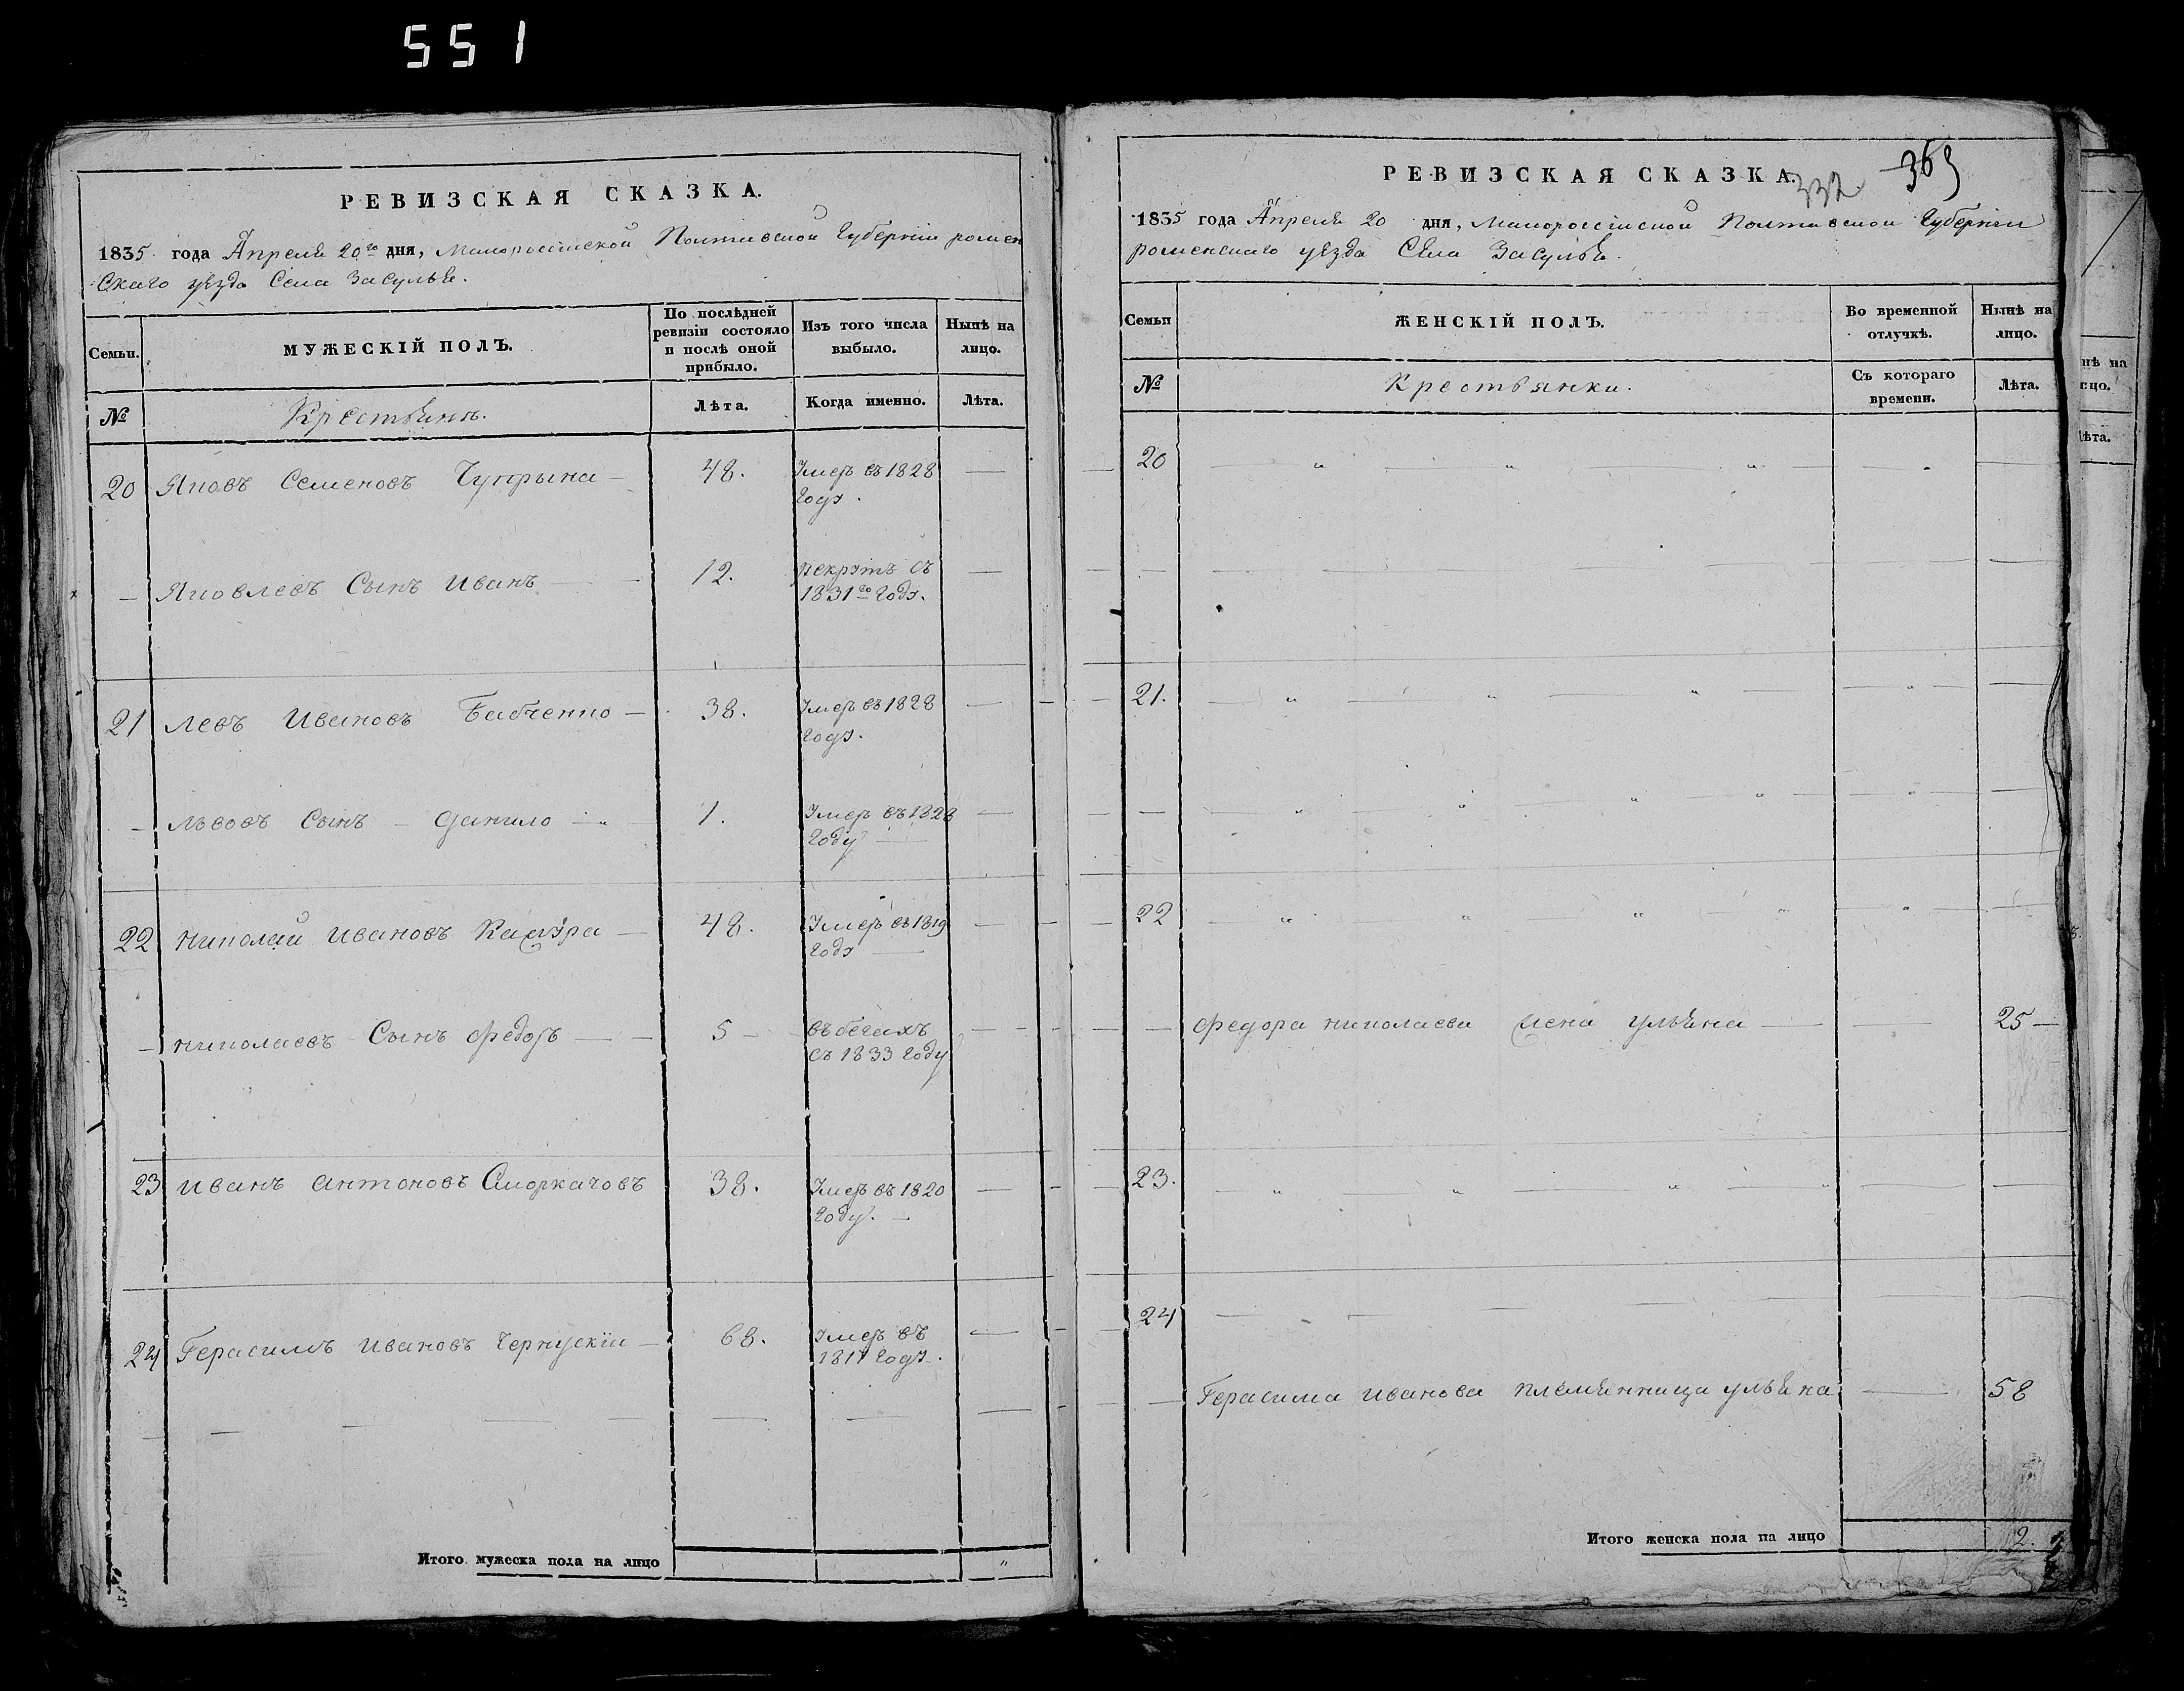 551
РЕВИЗСКАЯ СКАЗКА.
1835 года Апреля 20го дня, Малоросiйской Полтавской Губернiи ромен
Скаго уезда Села Засулья.
Семьи.
МУЖЕСКIЙ ПОЛЪ.
По послѣдней
ревизiи состояло
и послѣ оной
прибыло.
Изъ того числа
выбыло.
Нынѣ на
лицо.
№
Крестьянъ.
Лѣта.
Когда именно.
Лѣта.
20 Яковъ Семеновъ Чупрына — 48. Умеръ въ 1828 —
Году.
— Яковлевъ Сынъ Иванъ — 12. рекрутъ съ —
1831го Году.
21 Левъ Ивановъ Бабченко — 38. Умеръ въ 1828 —
Году.
— Львовъ Сынъ — Данило — 1. Умеръ въ 1828 —
Году —
22 Николай Ивановъ — 48. Умеръ въ 1819 —
Году —
— Николаевъ Сынъ Федоръ — 5 — въ бегахъ —
съ 1833 Году
23 Иванъ Антоновъ Сморкачовъ 38. Умеръ въ 1820 —
Году. —
24 Герасимъ Ивановъ — 68. Умеръ въ —
Году.
Итого мужеска пола на лицо "
РЕВИЗСКАЯ СКАЗКА.
332 369
1835 года Апреля 20 дня, Малоросiйской Полтавской Губернiи
роменскаго уезда Села Засулья.
Семьи
ЖЕНСКIЙ ПОЛЪ.
Во временной
отлучкѣ.
Нынѣ на
лицо.
№
Крестьянки.
Съ котораго
времени.
Лѣта.
20
21.
22
— Федора Николаева жена Ульяна — — 25 —
23.
24
— Герасима Иванова племянница Ульяна — 58
Итого женска пола на лицо 2.
нѣ на
цо.
Лѣта.